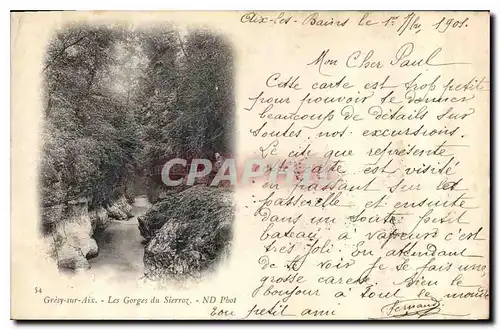 Aix-les-Bains le 1er 7bre 1901.
Mon Cher Paul
Cette carte est trop petite
pour pouvoir te donner
beaucoup de détails sur
toutes nos excursions.
Le site que représente
cette carte est visité
en passant sur la
passerelle et ensuite
dans un tout petit
bateau à vapeur c'est
très joli En attendant
de te voir je te fais une
grosse caresse Bien le
bonjour à tout le monde
Ton petit ami Fernand
CPA
54
Grésy-sur-Aix. - Les Gorges du Sierroz. - ND Phot